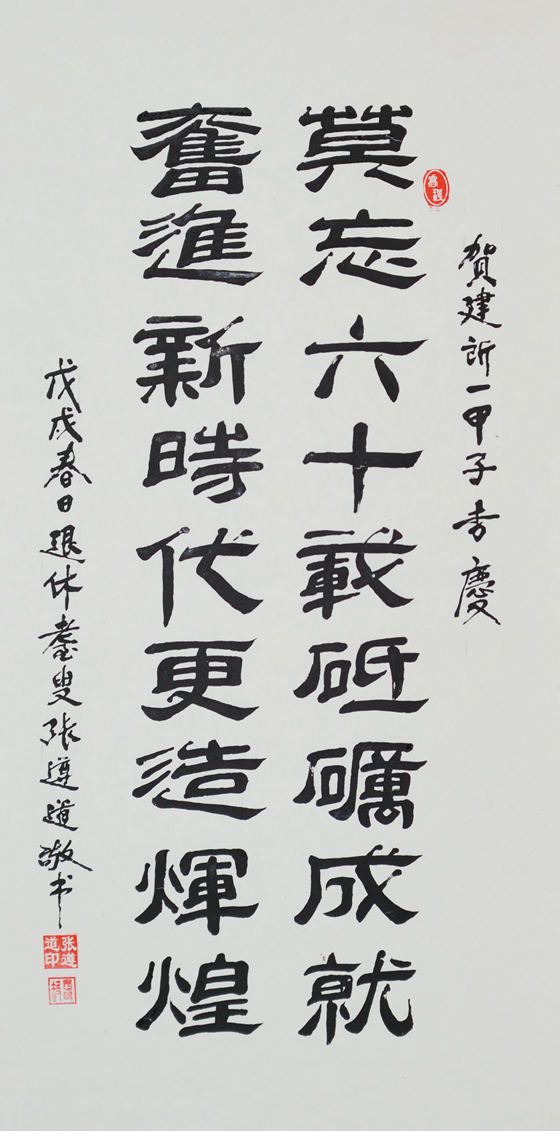 賀建所一甲子吉慶
莫忘六十載砥礪成就
奮進新時代更造輝煌
戊戌春日退休耋叟張遵道敬书
张遵道印